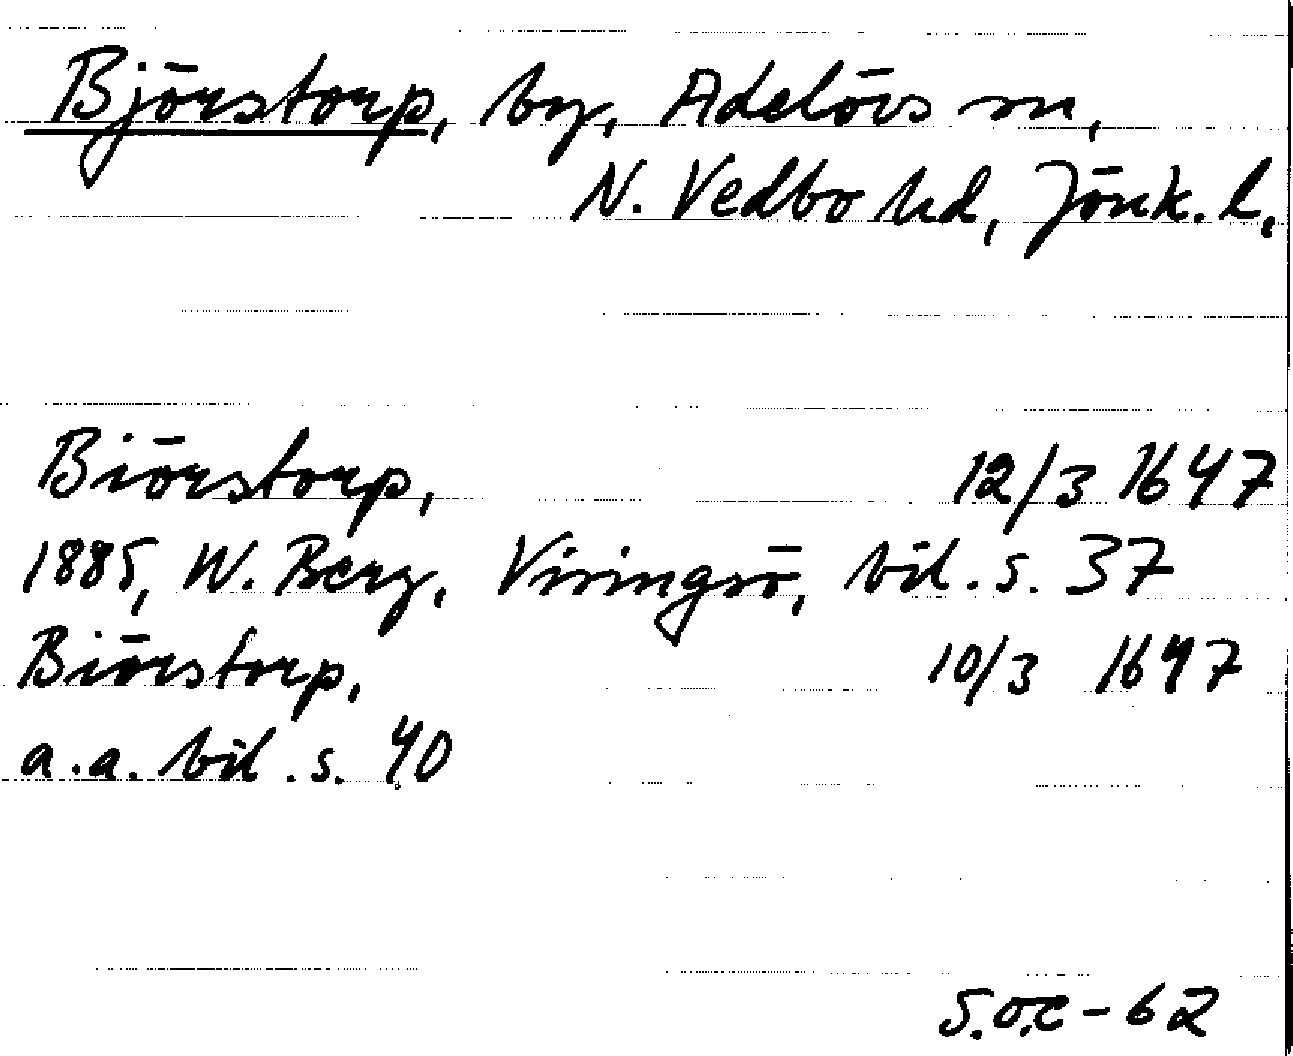 Björstorp, by, Adelövs sn,
N. Vedbo hd, Jönk. l.
Biörstorp, 12/3 1647
1885, W. Berg, Visingsö, bil. s. 37
Biörstorp, 10/3 1647
a.a. bil. s. 40
S.O.C-62